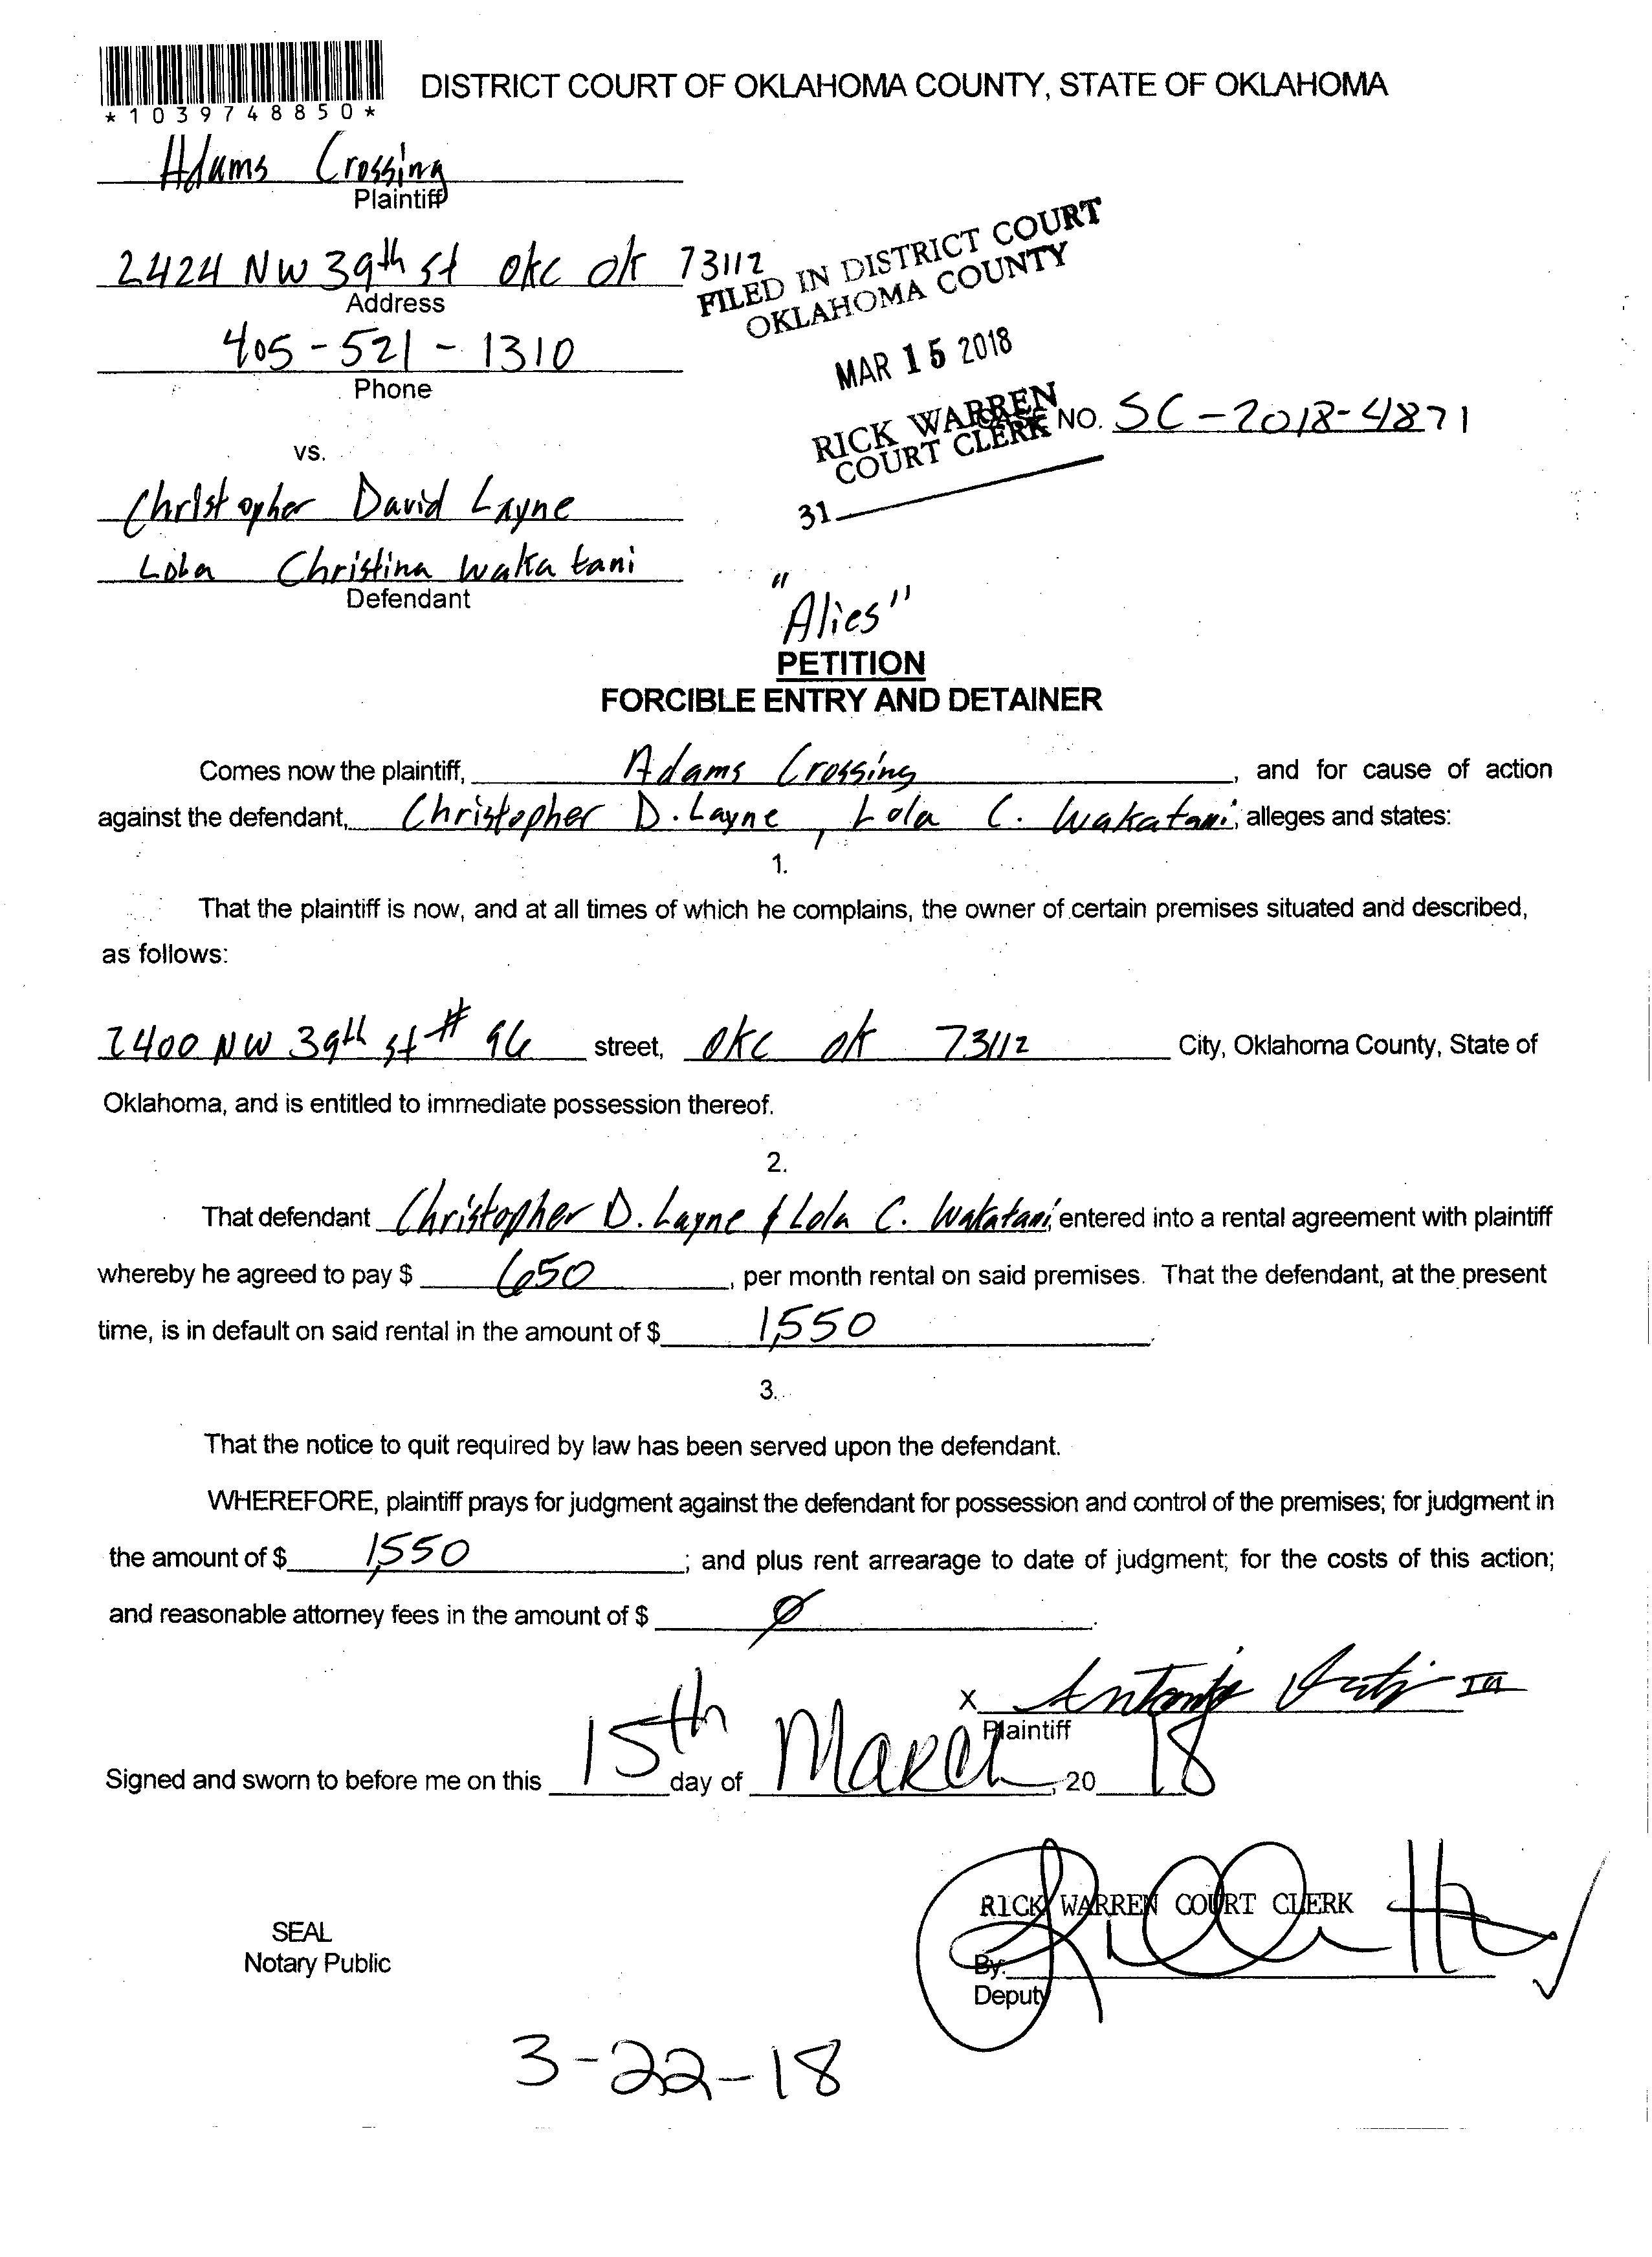 *1039748850*
DISTRICT COURT OF OKLAHOMA COUNTY, STATE OF OKLAHOMA
Adams Crossing
Plaintiff
2424 NW 39th st okc ok 73112
Address
FILED IN DISTRICT COURT
OKLAHOMA COUNTY
405-521-1310
Phone
MAR 15 2018
RICK WARREN
COURT CLERK
CASE NO. SC-2018-4871
31
vs.
Christopher David Layne
Lola Christina Wakatani
Defendant
"Alies"
PETITION
FORCIBLE ENTRY AND DETAINER
Comes now the plaintiff, Adams Crossing, and for cause of action
against the defendant, Christopher D. Layne, Lola C. Wakatani, alleges and states:
1.
That the plaintiff is now, and at all times of which he complains, the owner of certain premises situated and described,
as follows:
2400 NW 39th st # 96 street, okc ok 73112 City, Oklahoma County, State of
Oklahoma, and is entitled to immediate possession thereof.
2.
That defendant Christopher D. Layne & Lola C. Wakatani entered into a rental agreement with plaintiff
whereby he agreed to pay $ 650, per month rental on said premises. That the defendant, at the present
time, is in default on said rental in the amount of $ 1,550.
3.
That the notice to quit required by law has been served upon the defendant.
WHEREFORE, plaintiff prays for judgment against the defendant for possession and control of the premises; for judgment in
the amount of $ 1,550; and plus rent arrearage to date of judgment; for the costs of this action;
and reasonable attorney fees in the amount of $ 0.
X
Plaintiff
Signed and sworn to before me on this 15th day of March, 20 18
RICK WARREN COURT CLERK
SEAL
Notary Public
By:
Deputy
3-22-18